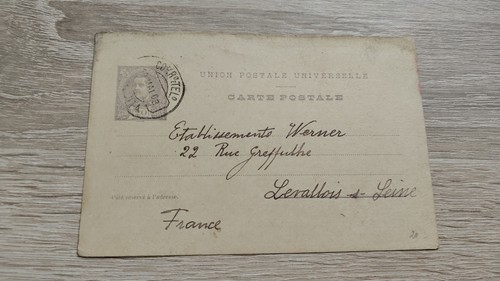 UNION POSTALE UNIVERSELLE
CARTE POSTALE
Etablissements Werner
22 Rue Greffulhe
Levallois s- Seine
Côté réservé à l'adresse.
France
20